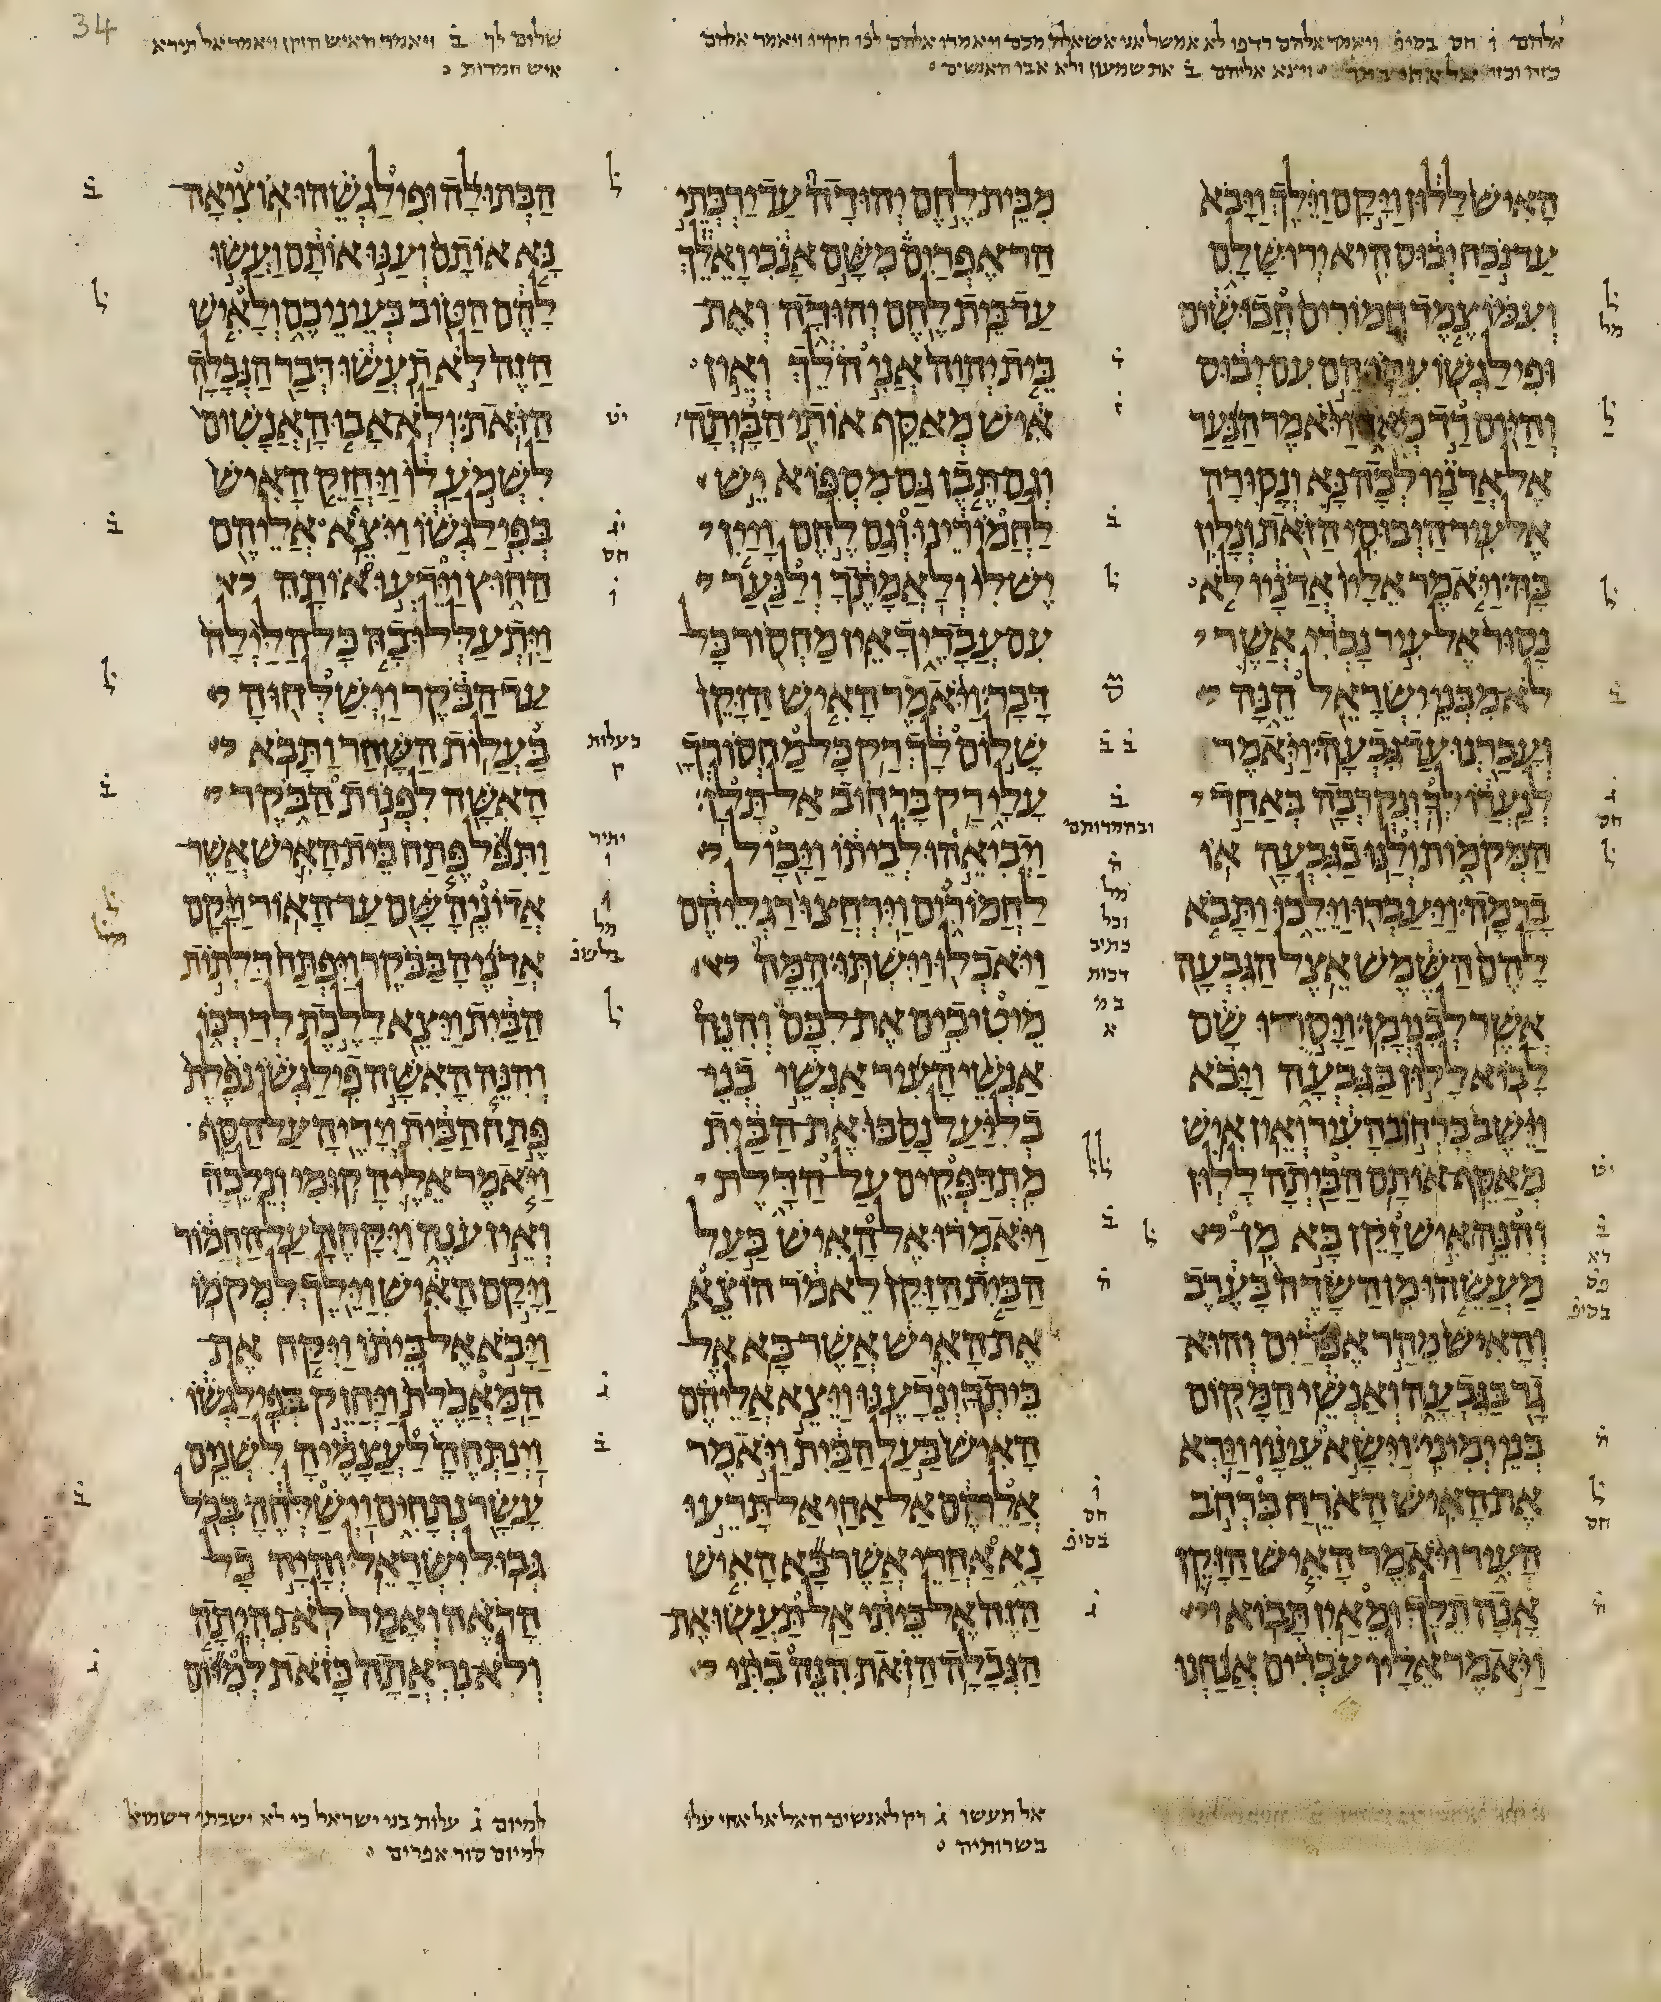 אלהם ו חס בסיפ ויאמר אלהם רדפו לא אמשל אני אשאלה מכם ויאמרו אלהם לכו חקרו ויאמר אלהם
כזה וכזה ויצא אליהם ב את שמעון ולא אבו האנשים
שלום לך ב ויאמר האיש הזקן ויאמר אל תירא
איש חמדות
האיש ללון ויקם וילך ויבא
עד נכח יבוס היא ירושלם
ועמו צמד חמורים חבושים
ופילגשו עמו הם עם יבוס
והיום רד מאד ויאמר הנער
אל אדניו לכה נא ונסורה
אל עיר היבוסי הזאת ונלין
בה ויאמר אליו אדניו לא
נסור אל עיר נכרי אשר
לא מבני ישראל הנה
ועברנו עד גבעה ויאמר
לנערו לך ונקרבה באחד
המקמות ולנו בגבעה או
ברמה ויעברו וילכו ותבא
להם השמש אצל הגבעה
אשר לבנימן ויסרו שם
לבוא ללון בגבעה ויבא
וישב ברחוב העיר ואין איש
מאסף אותם הביתה ללון
והנה איש זקן בא מן
מעשהו מן השדה בערב
והאיש מהר אפרים והוא
גר בגבעה ואנשי המקום
בני ימיני וישא עיניו וירא
את האיש הארח ברחב
העיר ויאמר האיש הזקן
אנה תלך ומאין תבוא
ויאמר אליו עברים אנחנו
מבית לחם יהודה עד ירכתי
הר אפרים משם אנכי ואלך
עד בית לחם יהודה ואת
בית יהוה אני הלך ואין
איש מאסף אותי הביתה
וגם תבן גם מספוא יש
לחמורינו וגם לחם ויין
יש לי ולאמתך ולנער
עם עבדיך אין מחסור כל
דבר ויאמר האיש הזקן
שלום לך רק כל מחסורך
עלי רק ברחוב אל תלן
ויביאהו לביתו ויבול
לחמורים וירחצו רגליהם
ויאכלו וישתו המה
מיטיבים את לבם והנה
אנשי העיר אנשי בני
בליעל נסבו את הבית
מתדפקים על הדלת
ויאמרו אל האיש בעל
הבית הזקן לאמר הוצא
את האיש אשר בא אל
ביתך ונדענו ויצא אליהם
האיש בעל הבית ויאמר
אלהם אל אחי אל תרעו
נא אחרי אשר בא האיש
הזה אל ביתי אל תעשו את
הנבלה הזאת הנה בתי
הבתולה ופילגשהו אוציאה
נא אותם וענו אותם ועשו
להם הטוב בעיניכם ולאיש
הזה לא תעשו דבר הנבלה
הזאת ולא אבו האנשים
לשמע לו ויחזק האיש
בפילגשו ויצא אליהם
החוץ וידעו אותה
ויתעללו בה כל הלילה
עד הבקר וישלחוה
בעלות השחר ותבא
האשה לפנות הבקר
ותפל פתח בית האיש אשר
אדוניה שם עד האור ויקם
אדניה בבקר ויפתח דלתות
הבית ויצא ללכת לדרכו
והנה האשה פילגשו נפלת
פתח הבית וידיה על הסף
ויאמר אליה קומי ונלכה
ואין ענה ויקחה על החמור
ויקם האיש וילך למקמו
ויבא אל ביתו ויקח את
המאכלת ויחזק בפילגשו
וינתחה לעצמיה לשנים
עשר נתחים וישלחה בכל
גבול ישראל והיה כל
הראה ואמר לא נהיתה
ולא נראתה כזאת למיום
אל תעשו ג רק לאנשים האל אל אחי עלו
בשרותיה
למיום ג עלות בני ישראל כי לא ישבתי דשמוא
למיום סור אפרים